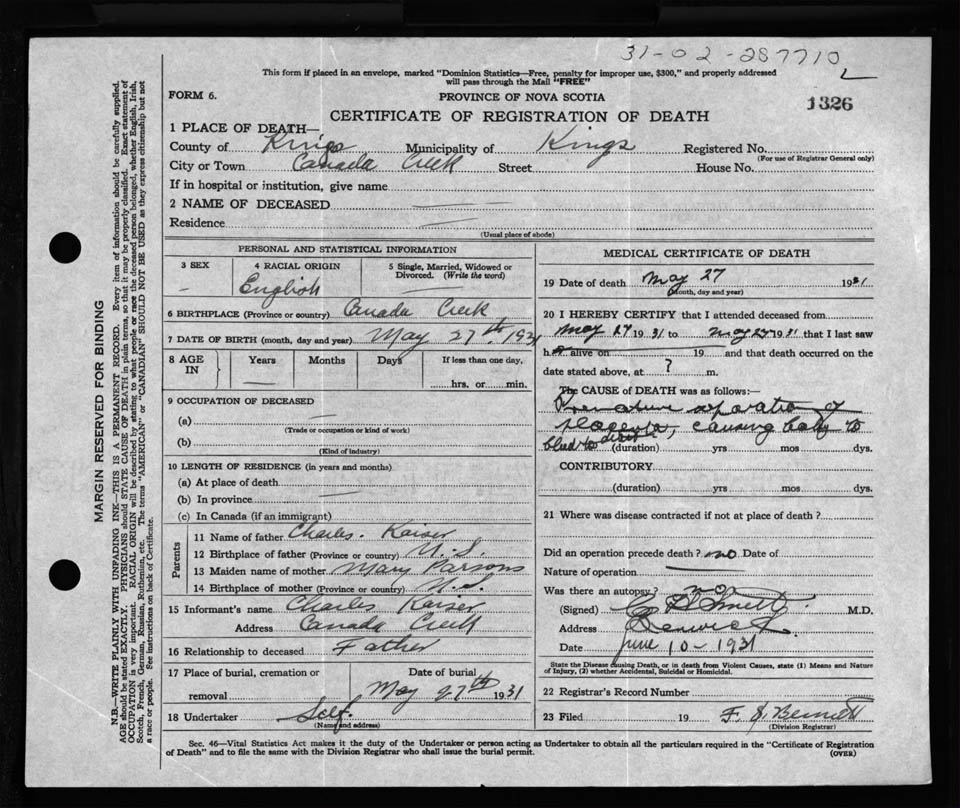 31-02-287710
This form if placed in an envelope, marked "Dominion Statistics—Free, penalty for improper use, $300," and properly addressed
will pass through the Mail "FREE"
FORM 6.
PROVINCE OF NOVA SCOTIA
1326
CERTIFICATE OF REGISTRATION OF DEATH
1 PLACE OF DEATH—
County of Kings Municipality of Kings Registered No.
(For use of Registrar General only)
City or Town Canada Creek Street House No.
If in hospital or institution, give name
2 NAME OF DECEASED
Residence
(Usual place of abode)
PERSONAL AND STATISTICAL INFORMATION
3 SEX
4 RACIAL ORIGIN
English
5 Single, Married, Widowed or
Divorced. (Write the word)
6 BIRTHPLACE (Province or country) Canada Creek
7 DATE OF BIRTH (month, day and year) May 27th. 1931
8 AGE
IN
Years Months Days If less than one day,
hrs. or min.
9 OCCUPATION OF DECEASED
(a)
(Trade or occupation or kind of work)
(b)
(Kind of industry)
10 LENGTH OF RESIDENCE (in years and months)
(a) At place of death
(b) In province
(c) In Canada (if an immigrant)
Parents
11 Name of father Charles. Kaiser
12 Birthplace of father (Province or country) N.S.
13 Maiden name of mother Mary Parsons
14 Birthplace of mother (Province or country) N.S.
15 Informant's name Charles Kaiser
Address Canada Creek
16 Relationship to deceased Father
17 Place of burial, cremation or Date of burial
removal May 27th 1931
18 Undertaker Self.
(Name and address)
MEDICAL CERTIFICATE OF DEATH
19 Date of death May 27 1931
(Month, day and year)
20 I HEREBY CERTIFY that I attended deceased from
May 27 1931 to May 27 1931 that I last saw
h alive on 19 and that death occurred on
date stated above, at ? m.
The CAUSE OF DEATH was as follows:—
Premature separation of
placenta, causing baby to
bleed to death
(duration) yrs mos dys.
CONTRIBUTORY
(duration) yrs mos dys.
21 Where was disease contracted if not at place of death?
Did an operation precede death? no Date of
Nature of operation
Was there an autopsy? no
(Signed) M.D.
Address Berwick
Date June 10-1931
State the Disease causing Death, or in death from Violent Causes, state (1) Means and Nature
of Injury, (2) whether Accidental, Suicidal or Homicidal.
22 Registrar's Record Number
23 Filed 19
(Division Registrar)
Sec. 46—Vital Statistics Act makes it the duty of the Undertaker or person acting as Undertaker to obtain all the particulars required in the "Certificate of Registration
of Death" and to file the same with the Division Registrar who shall issue the burial permit. (OVER)
MARGIN RESERVED FOR BINDING
N.B.—WRITE PLAINLY WITH UNFADING INK—THIS IS A PERMANENT RECORD. Every item of information should be carefully supplied.
AGE should be stated EXACTLY. PHYSICIANS should STATE CAUSE OF DEATH in plain terms, so that it may be properly classified. Exact statement of
OCCUPATION is very important. RACIAL ORIGIN will be described by stating to what people or race the deceased person belonged, whether English, Irish,
Scotch, French, German, Russian, Ruthenian, etc. The terms "AMERICAN" or "CANADIAN" SHOULD NOT BE USED as they express citizenship but not
a race or people. See instructions on back of Certificate.